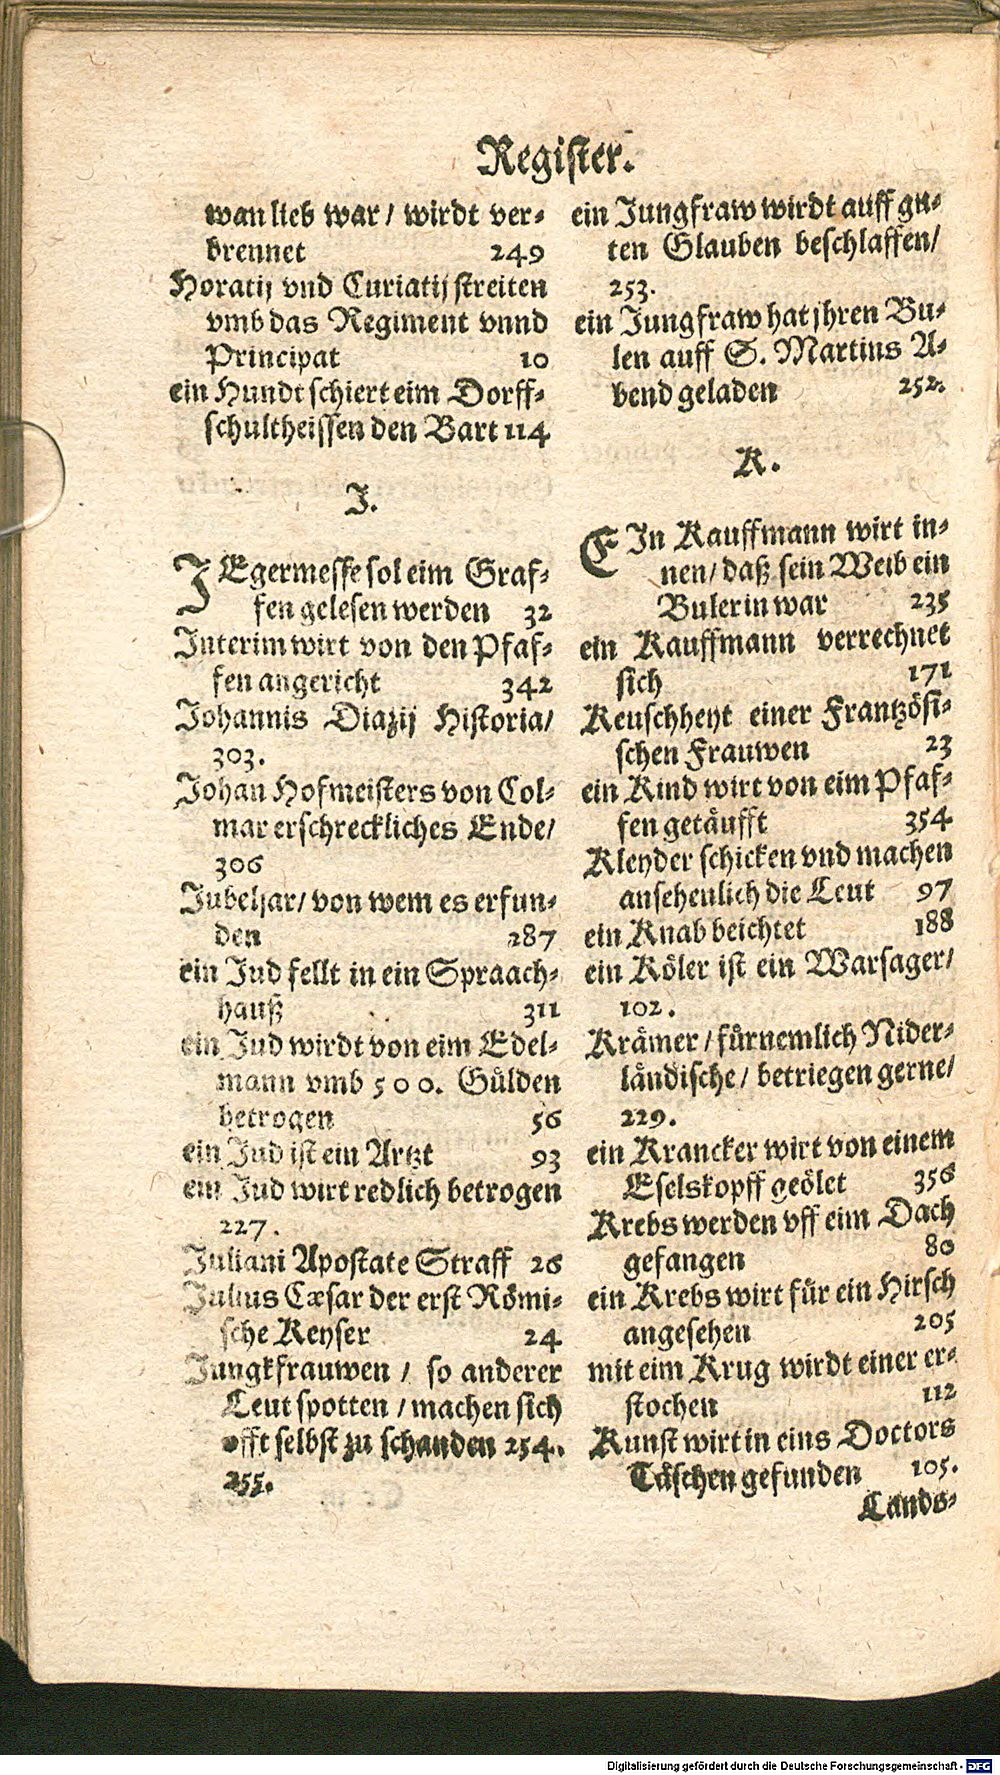 Register.
wan lieb war / wirdt ver-
brennet 249
Horatij vnd Curiatij streiten
vmb das Regiment vnnd
Principat 10
ein Hundt schiert eim Dorff-
schultheissen den Bart 114
J.
JEgermesse sol eim Graf-
fen gelesen werden 32
Interim wirt von den Pfaf-
fen angericht 342
Johannis Diazij Historia/
303.
Johan Hofmeisters von Col-
mar erschreckliches Ende/
306
Jubeljar/ von wem es erfun-
den 287
ein Jud fellt in ein Spraach-
hauß 311
ein Jud wirdt von eim Edel-
mann vmb 500. Gülden
betrogen 56
ein Jud ist ein Artzt 93
ein Jud wirt redlich betrogen
227.
Juliani Apostate Straff 26
Julius Cæsar der erst Römi-
sche Keyser 24
Jungkfrauwen / so anderer
Leut spotten / machen sich
offt selbst zu schanden 254.
255.
ein Jungfraw wirdt auff gu-
ten Glauben beschlaffen/
253.
ein Jungfraw hat jhren Bu-
len auff S. Martins A-
bend geladen 252.
K.
EIn Kauffmann wirt in-
nen/ daß sein Weib ein
Bulerin war 235
ein Kauffmann verrechnet
sich 171
Keuschheyt einer Frantzösi-
schen Frauwen 23
ein Kind wirt von eim Pfaf-
fen getäufft 354
Kleyder schicken vnd machen
ansehenlich die Leut 97
ein Knab beichtet 188
ein Köler ist ein Warsager/
102.
Krämer / fürnemlich Nider-
ländische/ betriegen gerne/
229.
ein Krancker wirt von einem
Eselskopff geölet 356
Krebs werden vff eim Dach
gefangen 80
ein Krebs wirt für ein Hirsch
angesehen 205
mit eim Krug wirdt einer er-
stochen 112
Kunst wirt in eins Doctors
Täschen gefunden 105.
Lands-
Digitalisierung gefördert durch die Deutsche Forschungsgemeinschaft - DFG